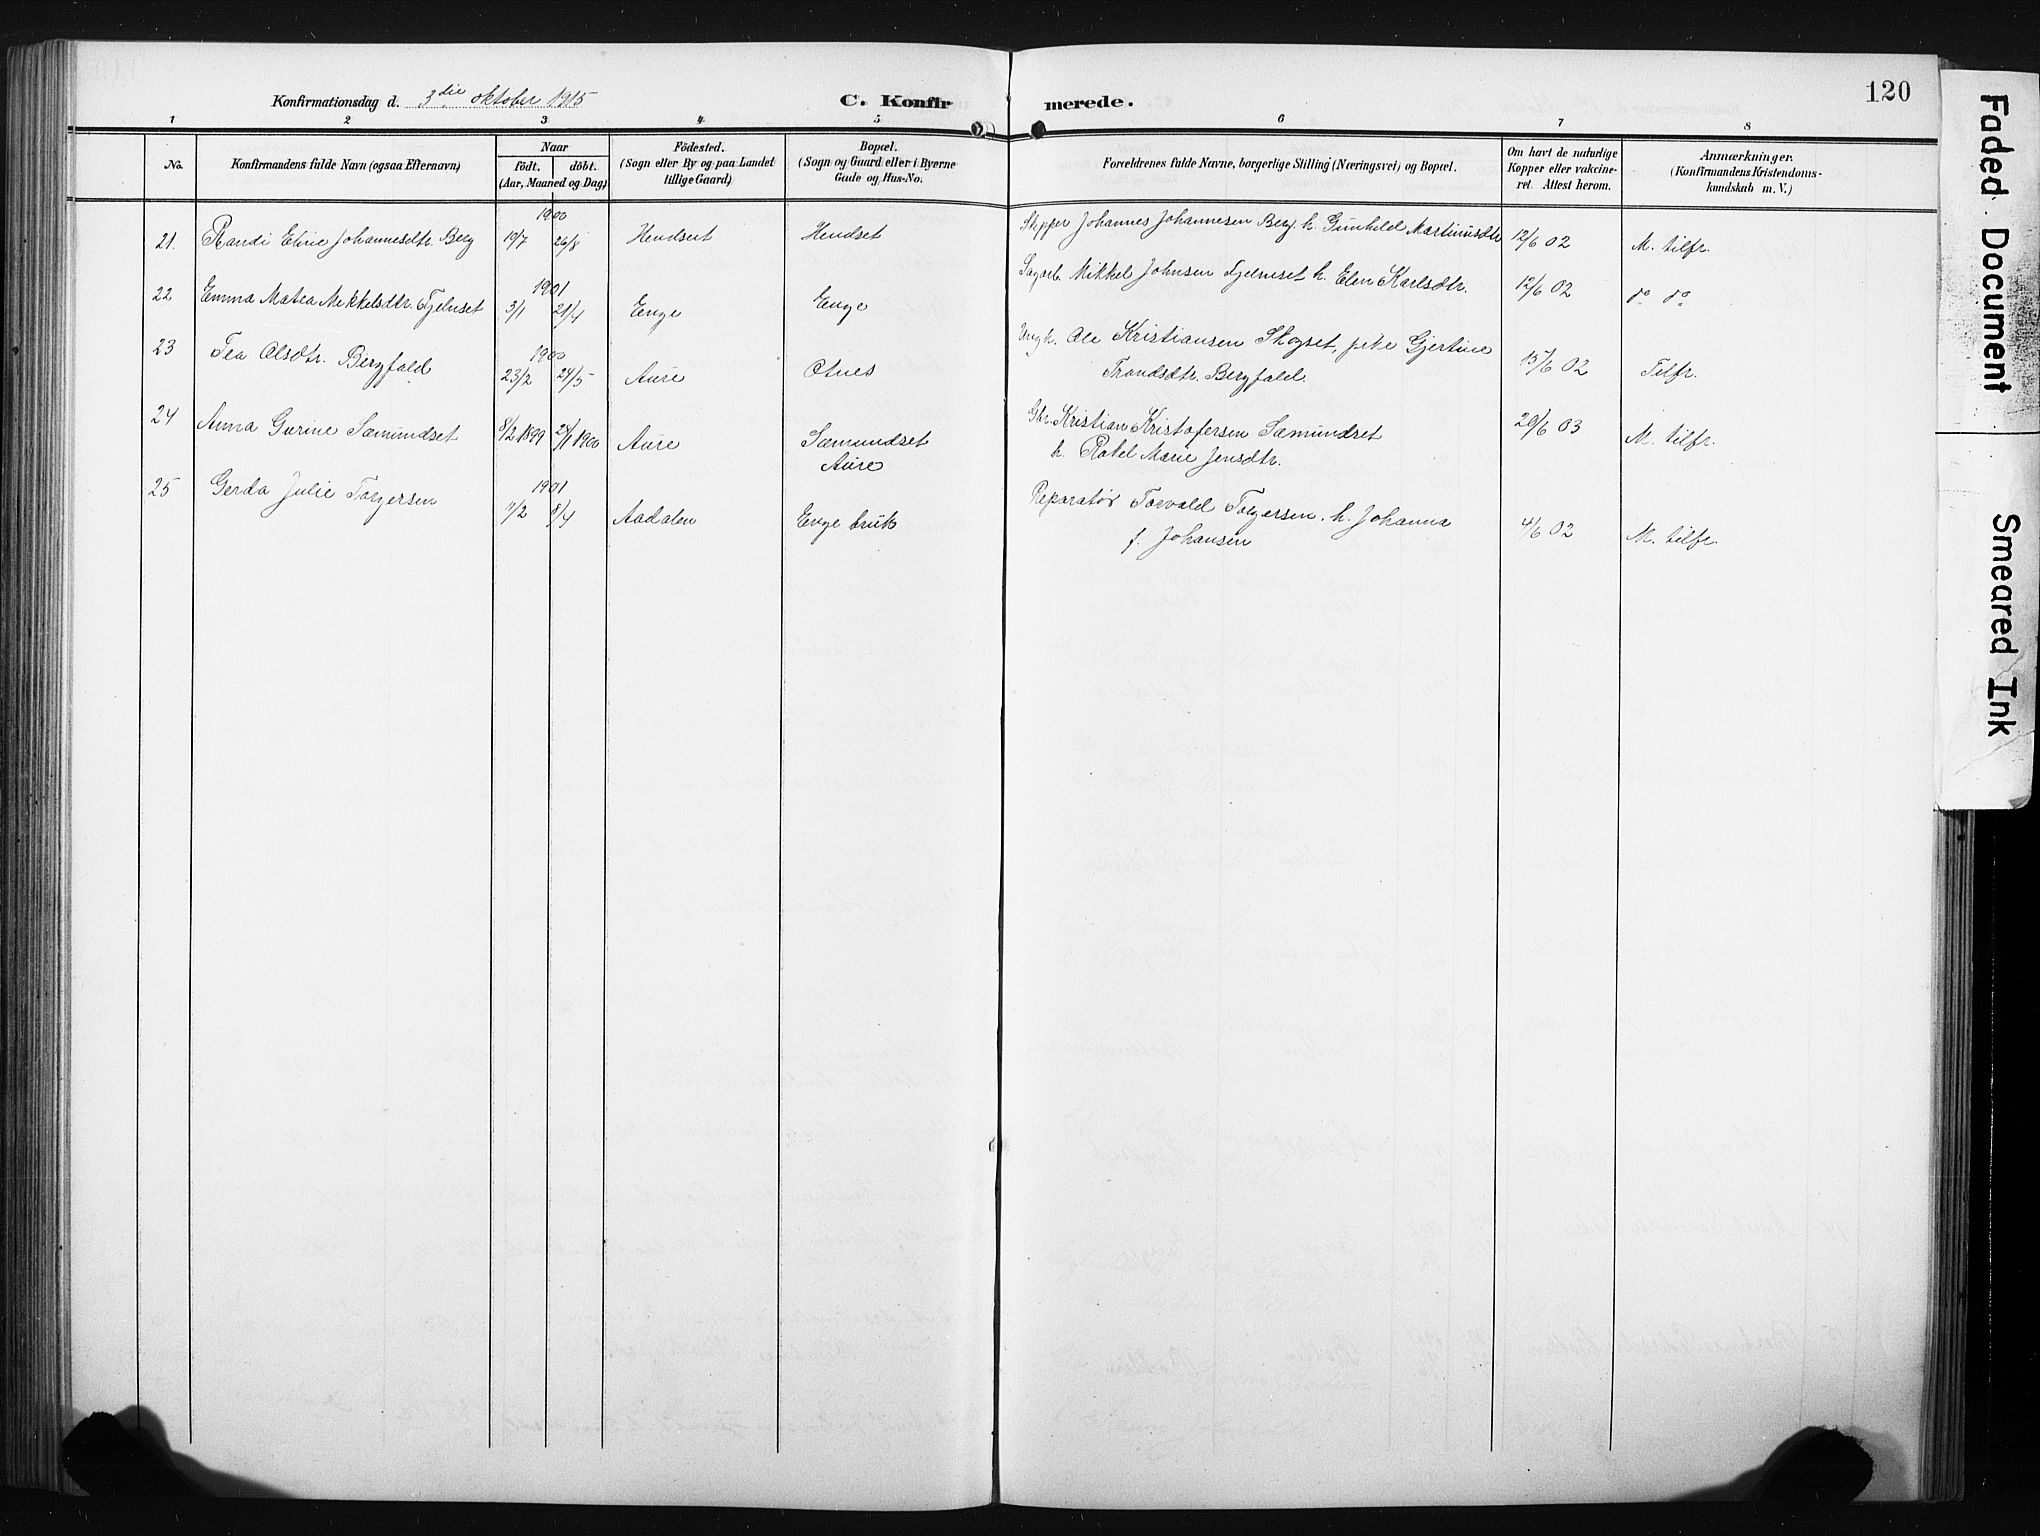 Konfirmationsdag d. 3die oktober 1915 C. Konfirmerede. 120
1 2 3 4 5 6 7 8
No. Konfirmandens fulde Navn (ogsaa Efternavn) Naar födt. döbt. (Aar, Maaned og Dag) Födested. (Sogn eller By og paa Landet tillige Gaard) Bopæl. (Sogn og Gaard eller i Byerne Gade og Hus-No. Forældrenes fulde Navne, borgerlige Stilling (Næringsvei) og Bopæl. Om havt de naturlige Kopper eller vakcineret. Attest herom. Anmærkninger. (Konfirmandens Kristendomskundskab m. V.)
1900
21. Randi Eline Johannesdtr. Berg 19/7 26/8 Hendset Hendset Skipper Johannes Johannesen Berg h. Gunhild Martinusdtr 12/6 02 M. tilfr.
1901
22 Emma Matea Mikkelsdtr. Fjelnset 3/1 21/4 Enge Enge Sagarb. Mikkel Johnsen Fjelnset h. Elen Karlsdtr. 12/6 02 do do
1900
23 Tea Olsdtr. Bergfald 23/2 24/5 Aure Otnes Ungk. Ole Kristiansen Skogset, pike Gjertine
Trondsdtr. Bergfald. 15/6 02 Tilfr.
24 Anna Gurine Sæmundset 8/2 1899 28/1 1900 Aure Sæmundset Gbr. Kristian Kristofersen Sæmundset 20/6 03 M. tilfr.
Aure h. Rakel Marie Jensdtr.
1901
25 Gerda Julie Torgersen 11/2 8/4 Aadalen Enge bruk Reparatør Torvald Torgersen. h. Johanna
f. Johansen 4/6 02 M. tilfr.
Faded Document
Smeared Ink